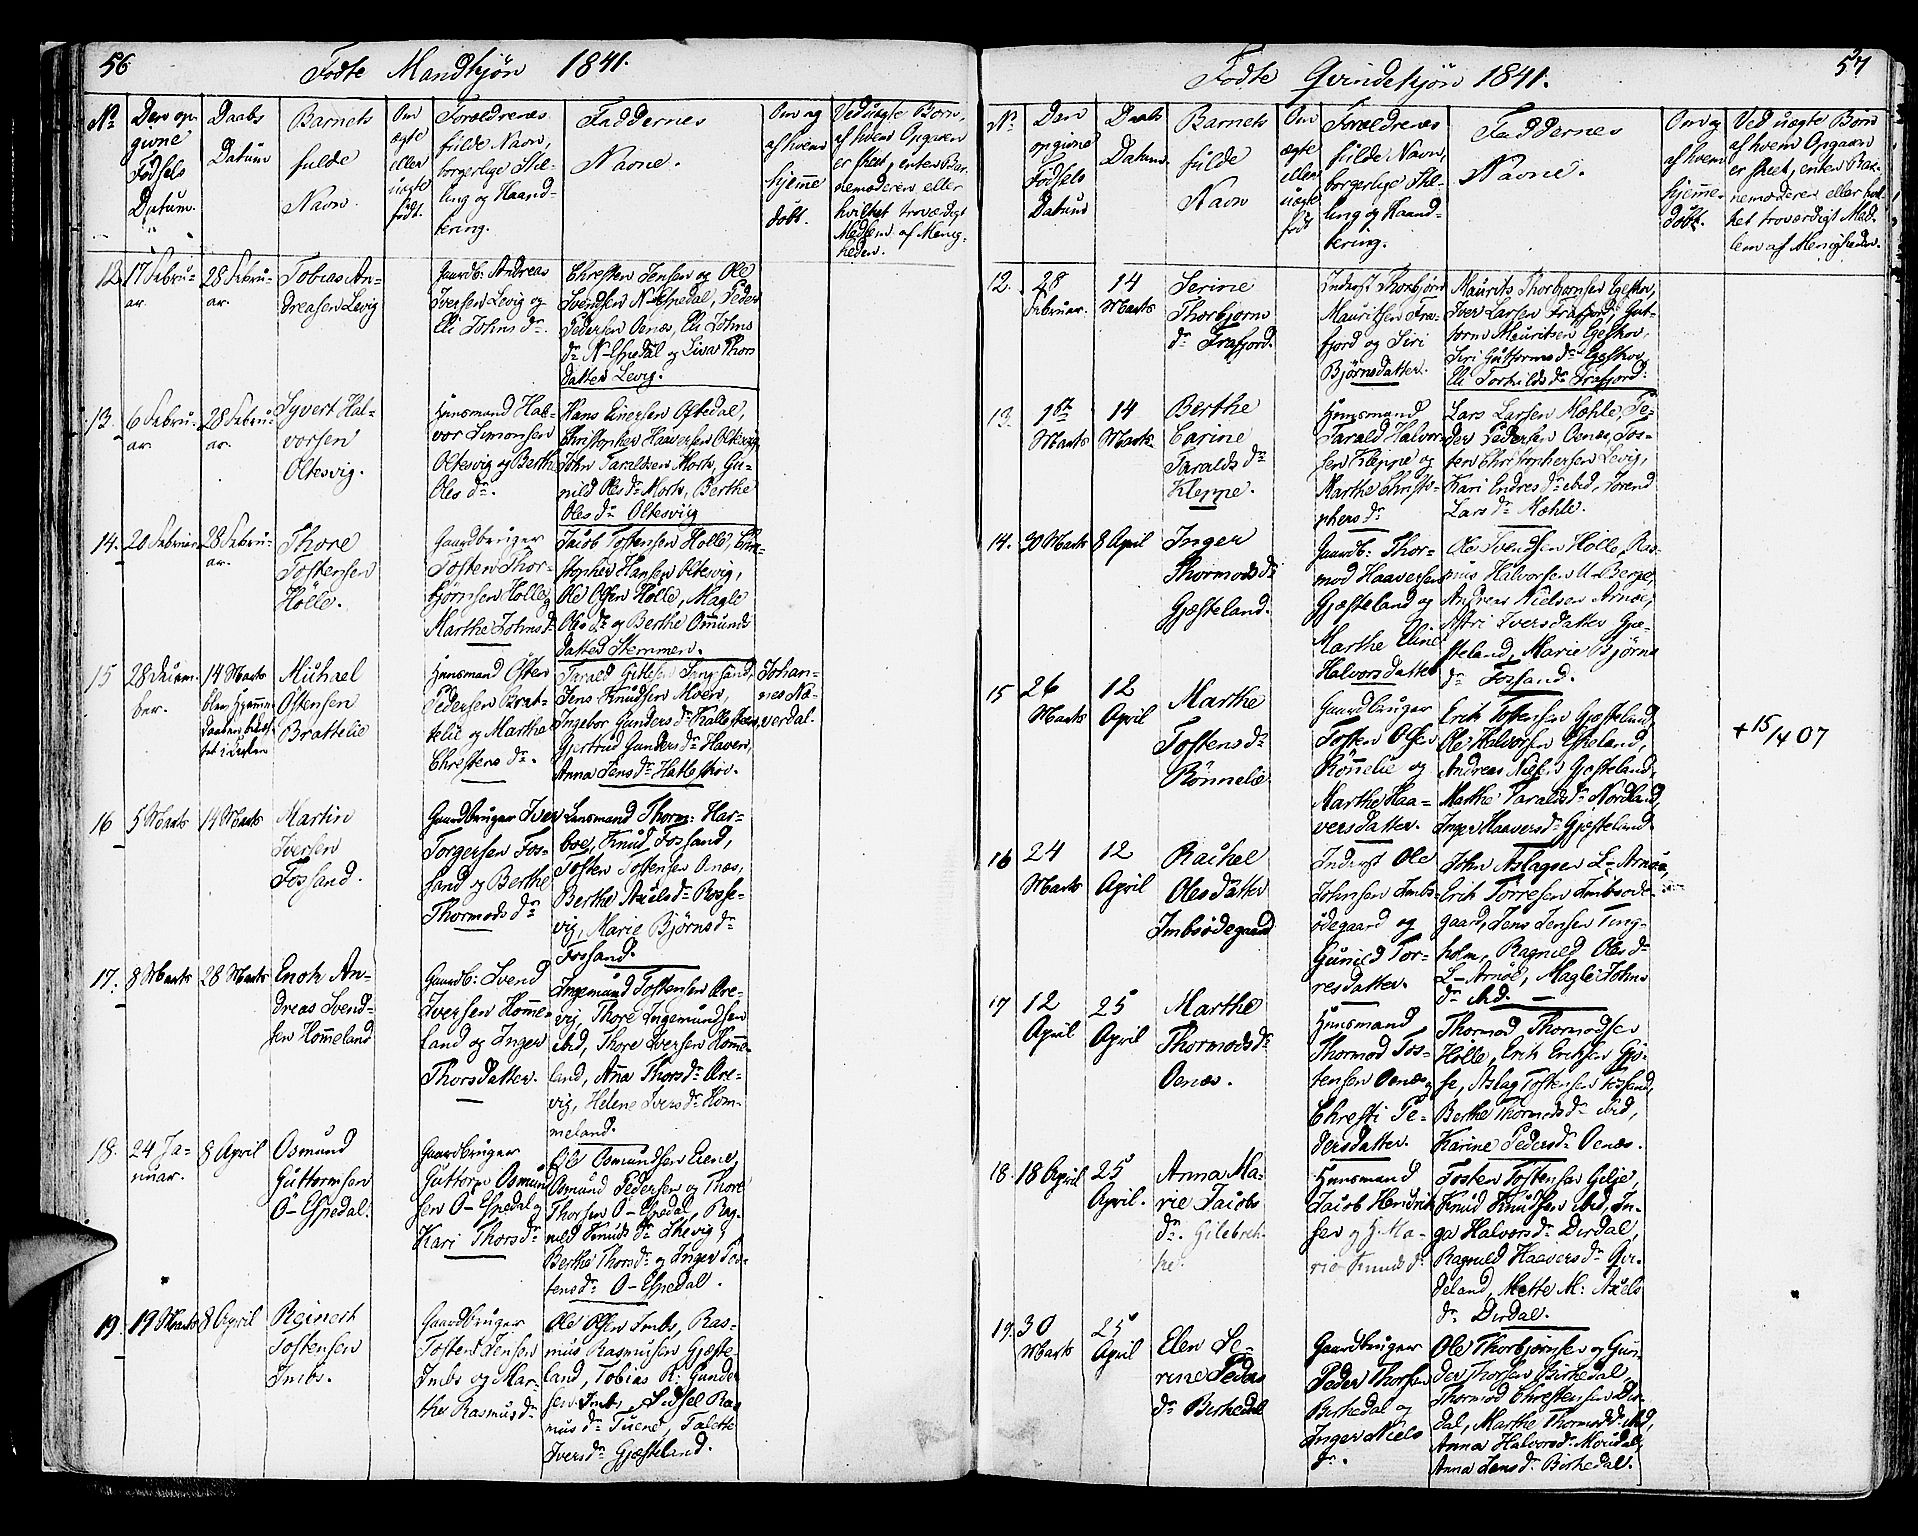 56
Fødte Mandkjøn 1841.
No
Den op-
givne
Fødsels
Datum.
Daabs
Datum
Barnets
fulde
Navn.
Om
ægte
eller
uægte
født.
Forældrenes
fulde Navn,
borgerlige Stil-
ling og Haand-
tering.
Faddernes
Navne.
Om og
af hvem
hjemme
døbt.
Ved uægte Børn,
af hvem Opgaven
er skeet, enten Bar-
nemoderen eller
hvilket troværdigt
Medlem af Menig-
heden.
12.
17 Febru-
ar.
28 Febru-
ar.
Tobias An-
dreasen Levig
Gaardb: Andreas
Iversen Levig og
Eli Johns dr.
Christen Jensen og Ole
Svendsen N-Espedal, Peder
Pedersen Oenæs, Eli Johns
dr N-Espedal og Lisa Thors
datter Levig.
13.
6 Febru-
ar.
28 Febru-
ar.
Syvert Hal-
vorsen
Oltesvig.
Huusmand Hal-
vor Simonsen
Oltesvig og Berthe
Oles dr.
Hans Einersen Oftedal,
Christopher Haaversen Oltesvig
John Taraldsen Mork, Gu-
nild Oles dr Mork, Berthe
Oles dr Oltesviig
14.
20 Februar
28 Febru-
ar.
Thore
Tostensen
Hölle.
Gaardbruger
Tosten Thor-
bjørnsen Hölle og
Marthe Johns dr
Jacob Tostensen Hölle, Chri-
stopher Hansen Oltesvig,
Ole Olsen Hölle, Magle
Oles dr og Berthe Omunds
datter Stemmen.
15
28 Decem-
ber.
14 Marts
blev Hjemme-
daaben bekræf-
tet i Kirken
Michael
Ostensen
Brattelie
Huusmand Osten
Pedersen Brat-
telie og Marthe
Christens dr.
Tarald Gitlesen Haugland,
Jens Knudsen Moen,
Ingebor Gunders dr Kallesteen,
Gjertrud Gunders dr Haven,
Anna Jens dr Hatleskov.
Johan-
nes Næ-
verdal.
16
5 Marts
14 Marts
Martin
Iversen
Fossand.
Gaardbruger Iver
Torgersen Fos-
sand og Berthe
Thormods dr
Lensmand Thorm: Har-
boe, Knud Fossand,
Tosten Tostensen Oenæs,
Berthe Axels dr Rosse-
vig, Marie Bjørns dr
Fossand.
17.
8 Marts
28 Marts
Enok An-
dreas Svend-
sen Hom̄eland
Gaardb: Svend
Iversen Hom̄e-
land og Inger
Thorsdatter.
Ingemund Tostensen Øre-
vig, Thore Ingemundsen
ibid, Thore Iversen Hom̄e-
land, Anna Thors dr Øre-
vig, Helene Ivers dr Hom-
meland.
18.
24 Ja-
nuar.
8 April
Osmund
Guttormsen
O-Espedal.
Gaardbruger
Guttorm Osmund
sen O-Espedal og
Kari Thors dr
Ole Osmundsen Eiene,
Osmund Pedersen og Thore
Thorsen O-Espedal, Rag-
nild Knuds dr
Berthe Thors dr og Inger Tos-
tens dr O-Espedal.
19
19 Marts
8 April
Reinert
Tostensen
Imbs.
Gaardbruger
Tosten Jensen
Imbs og Mar-
the Rasmus dr
Ole Olsen Imbs, Ras-
mus Rasmusen Gjæste-
land, Tobias R: Gunder
sen Imbs, Sidsel Ras
mus dr Tuene, Talette
Ivers dr Gjæsteland.
57
Fødte Qvindekjøn 1841.
No
Den
opgivne
Fødsels
Datum
Daabs
Datum.
Barnets
fulde
Navn
Om
ægte
eller
uægte
født
Forældrenes
fulde Navn,
borgerlige Stil-
ling og Haand-
tering.
Faddernes
Navne.
Om og
af hvem
hjemme-
døbt.
Ved uægte Børn
af hvem Opgaven
er skeet, enten Bar-
nemoderen eller hvil-
ket troværdigt Med-
lem af Menigheden.
12.
28
Februar.
14
Marts
Serine
Thorbjørns
dr Frafjord.
Inderst Thorbjørn
Mauritsen Fra-
fjord og Siri
Bjørnsdatter.
Maurits Thorbjørnsen Egeskov,
Iver Larsen Frafjord, Gut-
torm Mauritsen Egeskov,
Siri Guttorms dr Egeskov,
Eli Torkilds dr Frafjord.
13.
1ste
Marts
14
Marts
Berthe
Carine
Taralds dr
Kleppe.
Huusmand
Tarald Halvor-
sen Kleppe og
Marthe Christo-
phers dr
Lars Larsen Mæhle, Pe-
der Pedersen Oenæs, Tos-
ten Christophersen Levig,
Kari Endres dr ibid, Sørend
Lars dr Mæhle.
14.
30 Marts
8 April
Inger
Thormods dr
Gjæsteland.
Gaardb: Thor-
mod Haaversen
Gjæsteland og
Marthe Eline
Halvorsdatter
Ole Svendsen Hölle, Ras-
mus Halvorsen U-Berge,
Andreas Nielsen Arnøe,
Astri Iversdatter Gjæ-
steland, Marie Bjørns
dr Fossand.
15
26
Marts
12
April
Marthe
Tostens dr
Rönnelie
Gaardbruger
Tosten Olsen
Rön̄elie og
Marthe Haa-
versdatter.
Erik Tostensen Gjæsteland,
Ole Halvorsen Espeland,
Andreas Niels: Gjæsteland,
Marthe Taralds dr Nordland,
Inger Haavers dr Gjæsteland.
+ 15/4 07
16
24
Marts
12
April
Rachel
Olesdatter
Imbsødegaard
Inderst Ole
Johnsen Imbs-
ødegaard og
Gunild Tor-
resdatter.
John Aslagsen L-Arnøe,
Erik Torresen Imbsøde-
gaard, Jens Jensen Ting-
holm, Ragnild Oles dr
L-Arnøe, Magle Johns
dr ibid.
17
12
April
25
April
Marthe
Thormods dr
Oenæs.
Huusmand
Thormod Tos-
tensen Oenæs og
Christi Pe-
dersdatter.
Thormod Thormodsen
Hölle, Erik Eriksen Gjø-
se, Aslag Tostensen Fossand,
Berthe Thormods dr ibid,
Karine Peders dr Oenæs.
18.
18 April
25
April.
Anna Ma-
rie Jacobs
dr. Gilebrek-
ke.
Huusmand
Jacob Hendrik
sen og H. Ma-
rie Knuds dr
Tosten Tostensen Gilje,
Knud Knudsen ibid, In-
ga Halvors dr Dirdal,
Ragnild Haavers dr Gil-
deland, Mette M: Axels
dr Dirdal.
19.
30
Marts
25
April
Elen Se-
rine Peders
dr Birkedal
Gaardbruger
Peder Thorsen
Birkedal og
Inger Niels
dr.
Ole Thorbjørnsen og Gun-
der Thorsen Birkedal,
Thormod Christensen Dir-
dal, Marthe Thormods dr ibid,
Anna Halvors dr Moudal,
Anna Jens dr Birkedal.